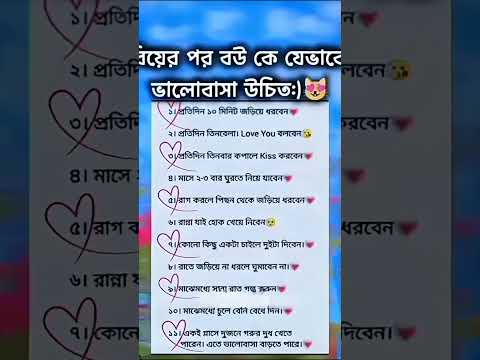 বিয়ের পর বউ কে যেভাবে
ভালোবাসা উচিত:)😻
১। প্রতিদিন ১০ মিনিট জড়িয়ে ধরবেন💗
২। প্রতিদিন তিনবেলা। Love You বলবেন😘
৩। প্রতিদিন তিনবার কপালে Kiss করবেন💗
৪। মাসে ২-৩ বার ঘুরতে নিয়ে যাবেন💗
৫। রাগ করলে পিছন থেকে জড়িয়ে ধরবেন💗
৬। রান্না যাই হোক খেয়ে নিবেন🥹
৭। কোনো কিছু একটা চাইলে দুইটা দিবেন।💗
৮। রাতে জড়িয়ে না ধরলে ঘুমাবেন না।💗
৯। মাঝেমধ্যে সারা রাত গল্প করুন💗
১০। মাঝেমধ্যে চুলে বেনি বেধে দিন।💗
১১। একই গ্লাসে দুজনে গরুর দুধ খেতে
পারেন। এতে ভালোবাসা বাড়তে পারে।💗